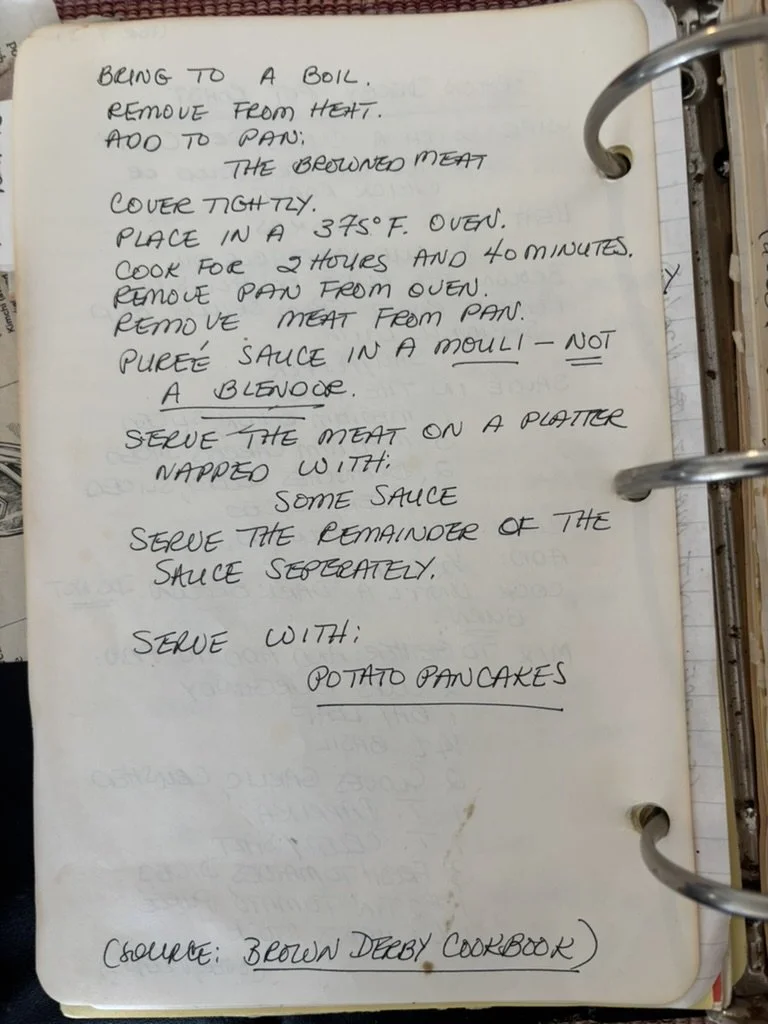 BRING TO A BOIL.
REMOVE FROM HEAT.
ADD TO PAN:
THE BROWNED MEAT
COVER TIGHTLY.
PLACE IN A 375°F. OVEN.
COOK FOR 2 HOURS AND 40 MINUTES.
REMOVE PAN FROM OVEN.
REMOVE MEAT FROM PAN.
PUREÉ SAUCE IN A MOULI - NOT
A BLENDOR.
SERVE THE MEAT ON A PLATTER
NAPPED WITH:
SOME SAUCE
SERVE THE REMAINDER OF THE
SAUCE SEPERATELY.
SERVE WITH:
POTATO PANCAKES
(SOURCE: BROWN DERBY COOKBOOK)